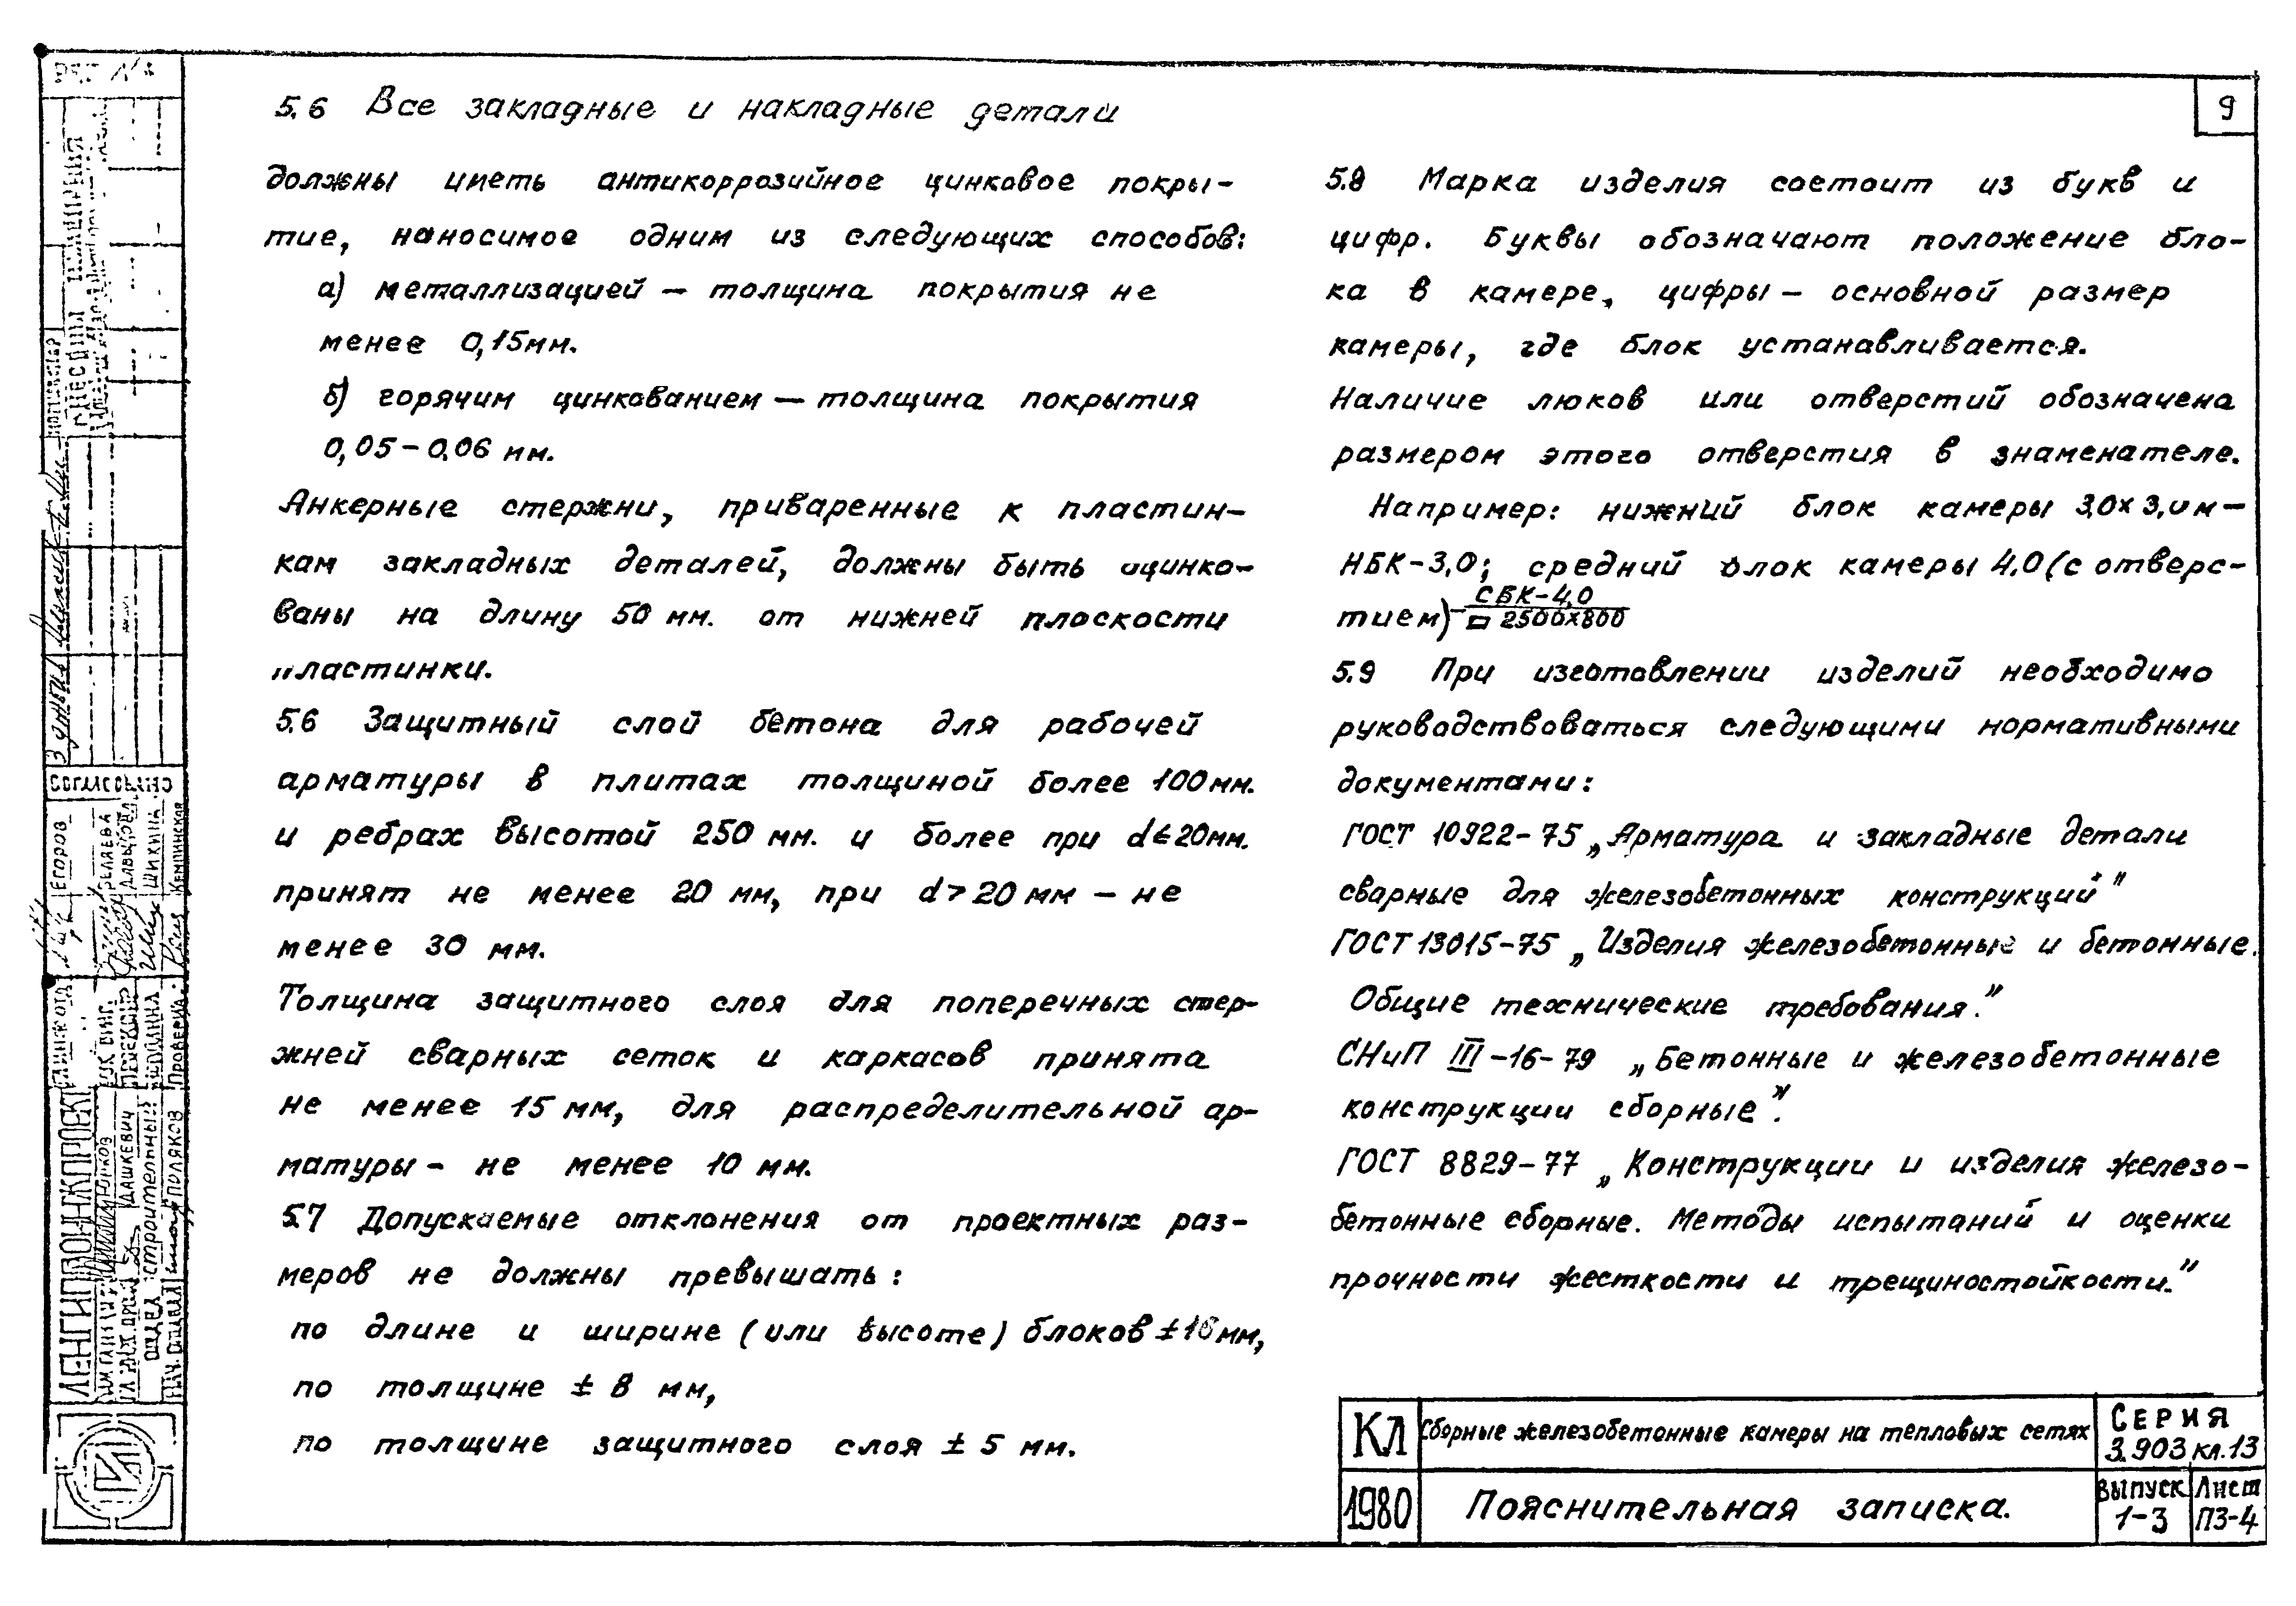 9
5.6 Все закладные и накладные детали
должны иметь антикоррозийное цинковое покры-
тие, наносимое одним из следующих способов:
а) металлизацией — толщина покрытия не
менее 0,15мм.
б) горячим цинкованием — толщина покрытия
0,05-0.06 мм.
Анкерные стержни, приваренные к пластин-
кам закладных деталей, должны быть оцинко-
ваны на длину 50 мм. от нижней плоскости
пластинки.
5.6 Защитный слой бетона для рабочей
арматуры в плитах толщиной более 100мм.
и ребрах высотой 250 мм. и более при d≤20мм.
принят не менее 20 мм, при d>20 мм — не
менее 30 мм.
Толщина защитного слоя для поперечных стер-
жней сварных сеток и каркасов принята
не менее 15 мм, для распределительной ар-
матуры - не менее 10 мм.
5.7 Допускаемые отклонения от проектных раз-
меров не должны превышать:
по длине и ширине (или высоте) блоков ±16мм,
по толщине ± 8 мм,
по толщине защитного слоя ± 5 мм.
5.8 Марка изделия состоит из букв и
цифр. Буквы обозначают положение бло-
ка в камере, цифры — основной размер
камеры, где блок устанавливается.
Наличие люков или отверстий обозначена
размером этого отверстия в знаменателе.
Например: нижний блок камеры 3,0×3,0м —
НБК-3,0; средний блок камеры 4,0 (с отверс-
тием) - СБК-4,0
□ 2500×800
5.9 При изготовлении изделий необходимо
руководствоваться следующими нормативными
документами:
ГОСТ 10922-75 „Арматура и закладные детали
сварные для железобетонных конструкций"
ГОСТ 13015-75 „Изделия железобетонные и бетонные.
Общие технические требования."
СНиП III-16-79 „Бетонные и железобетонные
конструкции сборные".
ГОСТ 8829-77 „Конструкции и изделия железо-
бетонные сборные. Методы испытаний и оценки
прочности жесткости и трещиностойкости."
КЛ
Сборные железобетонные камеры на тепловых сетях
Серия
3.903 кл.13
1980
Пояснительная записка.
Выпуск
1-3
Лист
ПЗ-4
Согласовано
Егоров
Шихина
Кемпинская
Проверил
ЛЕНГИПРОИНЖПРОЕКТ
Дашкевич
строительный
Поляков